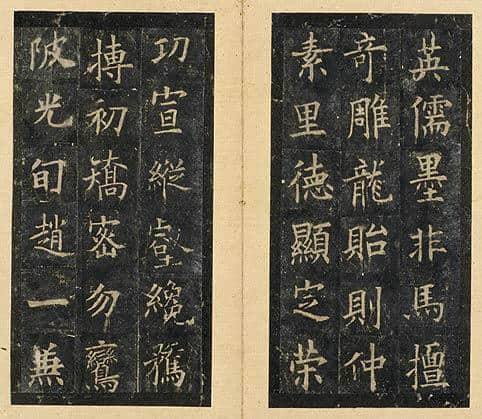 英儒墨非馬擅
奇雕龍貽則仲
素里德顯定榮
功宣縱壑纔
摶初矯密勿鸞
陂光旬趙一兼